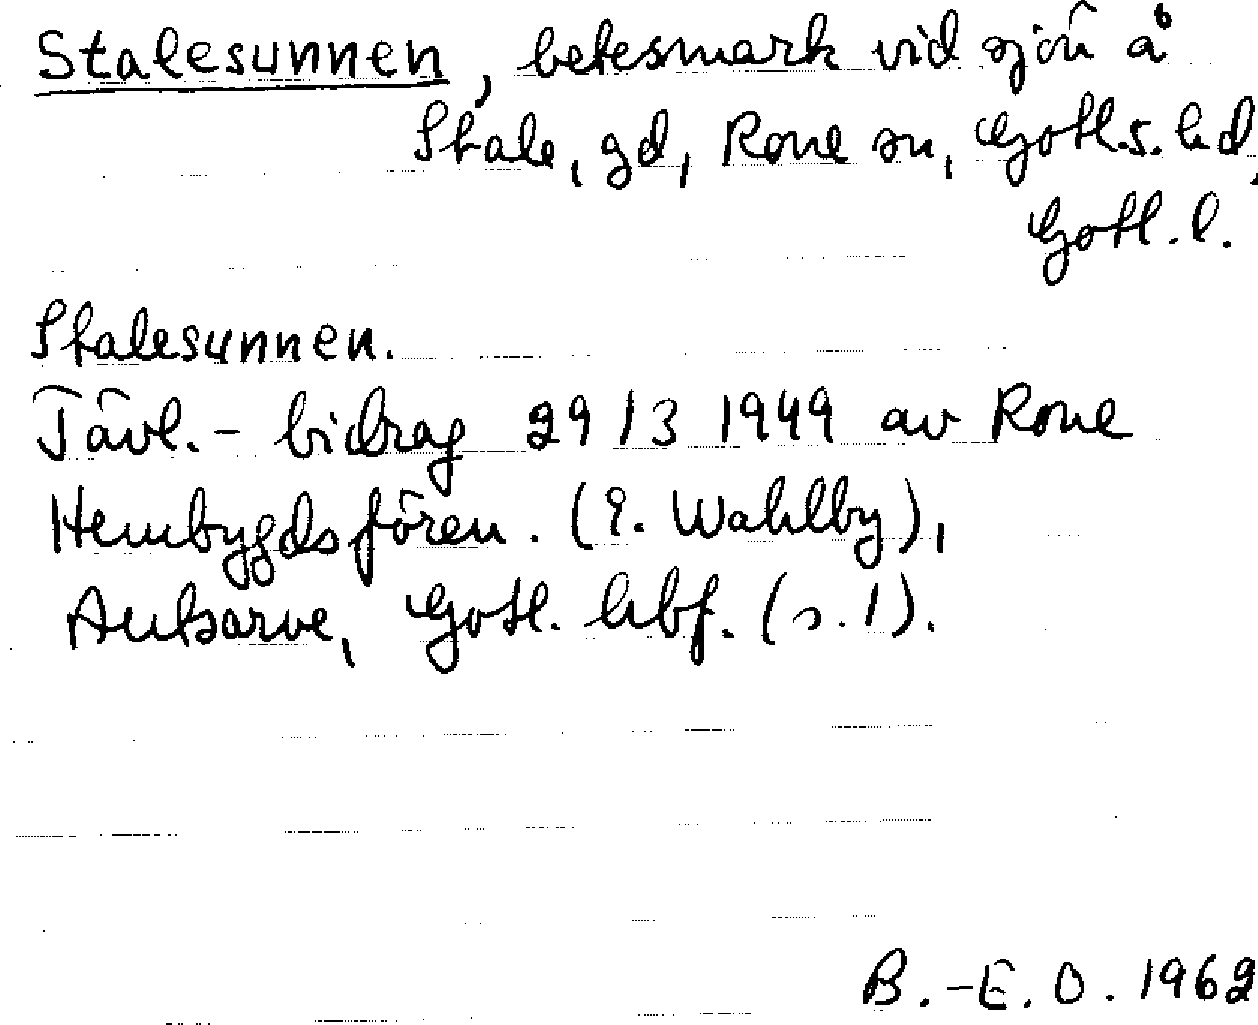 Stalesunnen, betesmark vid sjön å
Stale, gd, Rone sn, Gotl.s. hd,
Gotl. l.
Stalesunnen.
Tävl.- bidrag 29/3 1949 av Rone
Hembygdsfören. (E. Wahlby),
Autsarve, Gotl. hbf. (s. 1).
B.-E.O. 1962